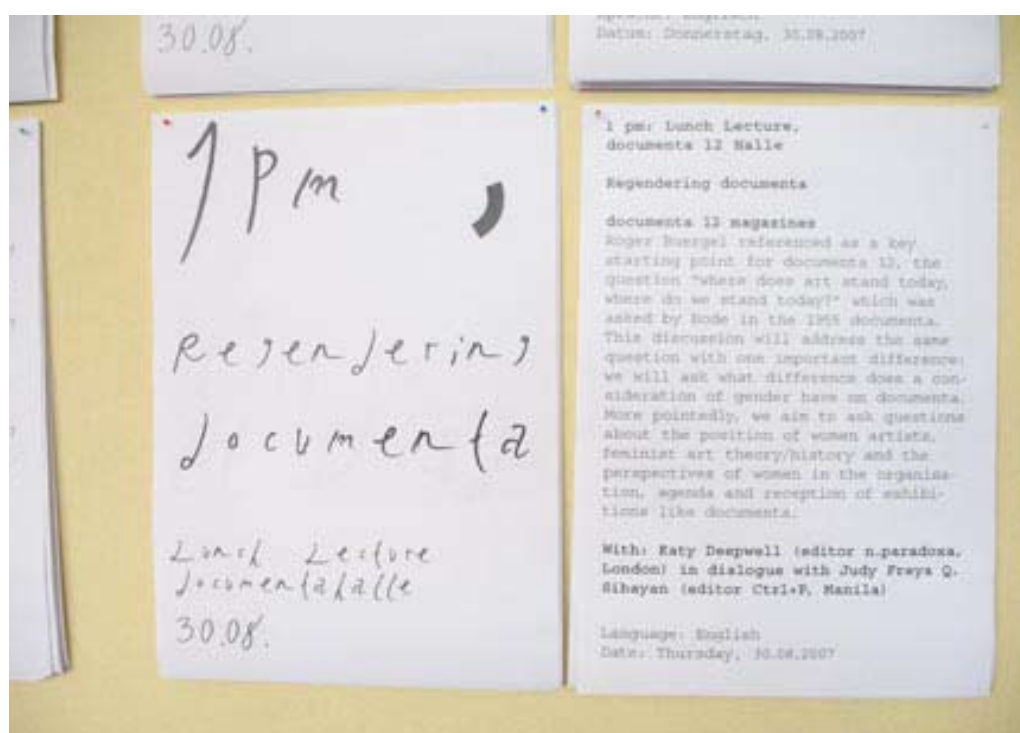 30.08.
Sprache: Englisch
Datum: Donnerstag, 30.08.2007
1 pm ,
Regendering
documenta
Lunch Lecture
documentahalle
30.08.
1 pm: Lunch Lecture,
documenta 12 Halle
Regendering documenta
documenta 12 magazines
Roger Buergel referenced as a key
starting point for documenta 12, the
question "where does art stand today,
where do we stand today?" which was
asked by Bode in the 1955 documenta.
This discussion will address the same
question with one important difference:
we will ask what difference does a con-
sideration of gender have on documenta.
More pointedly, we aim to ask questions
about the position of women artists,
feminist art theory/history and the
perspectives of women in the organisa-
tion, agenda and reception of exhibi-
tions like documenta.
With: Katy Deepwell (editor n.paradoxa,
London) in dialogue with Judy Freya Q.
Sibayan (editor Ctrl+P, Manila)
Language: English
Date: Thursday, 30.08.2007